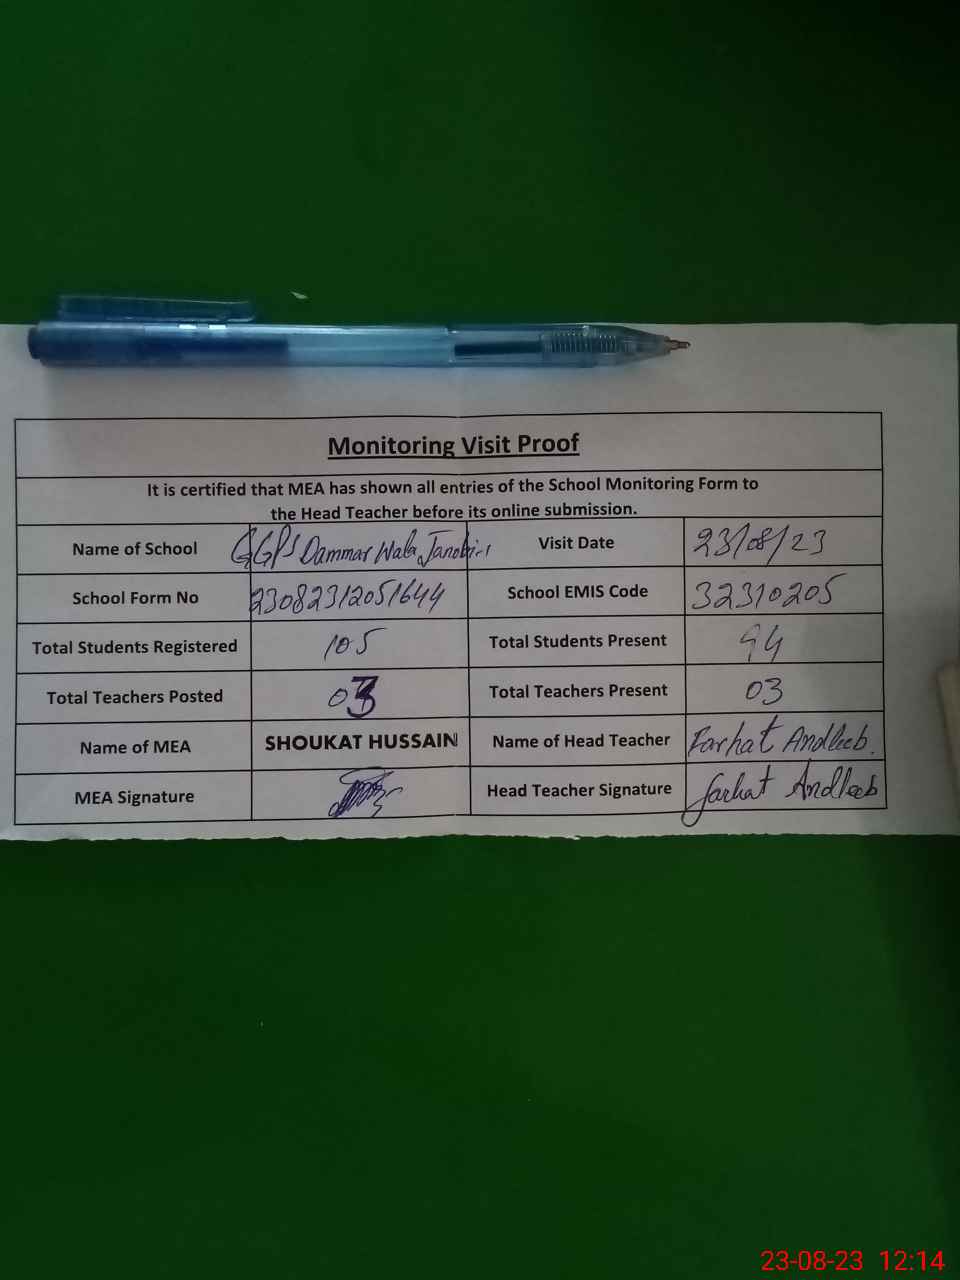 Monitoring Visit Proof
It is certified that MEA has shown all entries of the School Monitoring Form to
the Head Teacher before its online submission.
Name of School GGPS Dammar Wala Janobi Visit Date 23/08/23
School Form No 23082312051644 School EMIS Code 32310205
Total Students Registered 105 Total Students Present 94
Total Teachers Posted 03 Total Teachers Present 03
Name of MEA SHOUKAT HUSSAIN Name of Head Teacher Farhat Andleeb.
MEA Signature Head Teacher Signature Farhat Andleeb
23-08-23 12:14